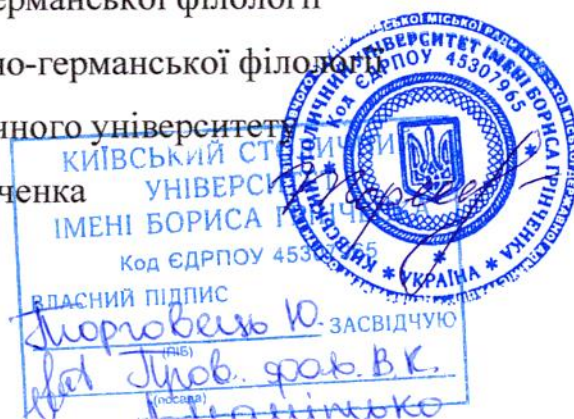 германської філології
но-германської філології
чного університету
ченка
КИЇВСЬКИЙ СТОЛИЧНИЙ
УНІВЕРСИТЕТ
ІМЕНІ БОРИСА ГРІНЧЕНКА
Код ЄДРПОУ 45307965
ВЛАСНИЙ ПІДПИС
Торговець Ю. ЗАСВІДЧУЮ
(ПІБ)
Пров. фах. В.К.
(посада)
КИЇВСЬКИЙ СТОЛИЧНИЙ УНІВЕРСИТЕТ ІМЕНІ БОРИСА ГРІНЧЕНКА
Код ЄДРПОУ 45307965
* УКРАЇНА *